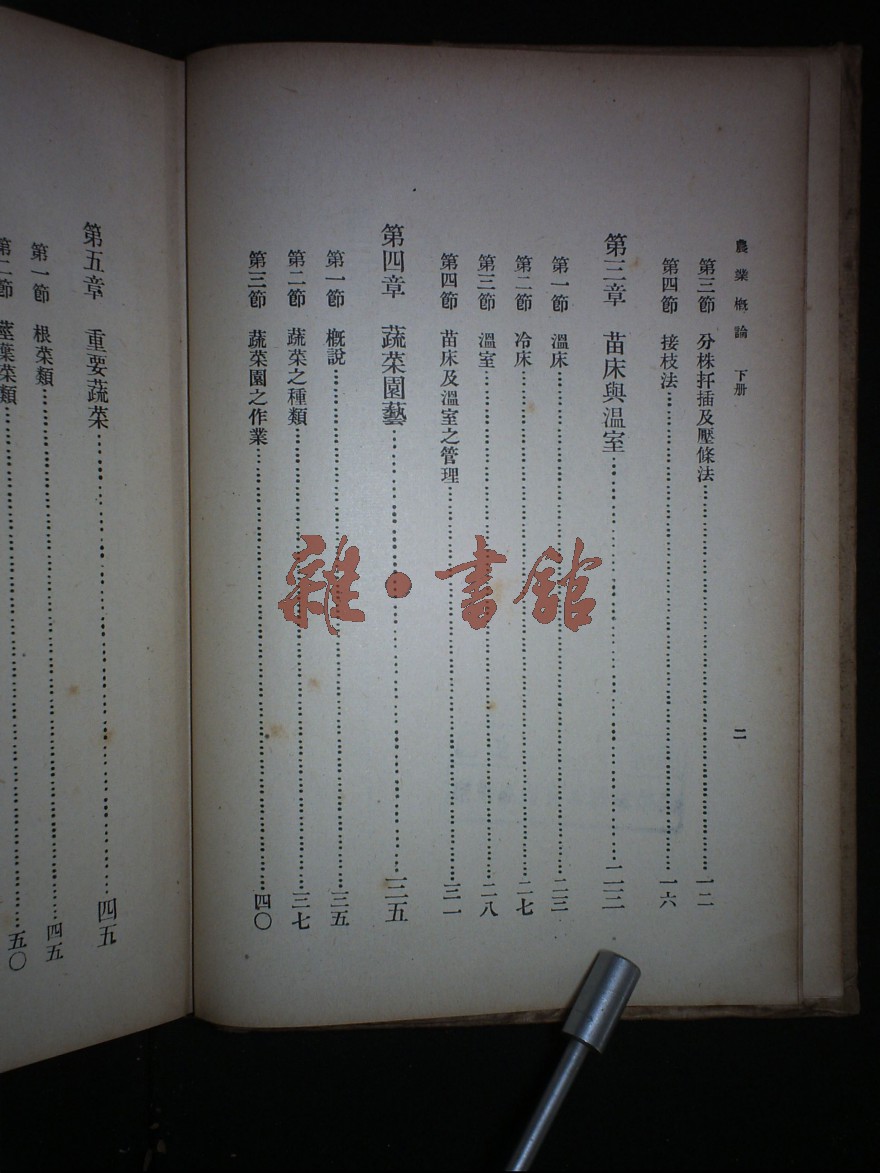 農業概論 下册
二
第三節 分株扦插及壓條法……一二
第四節 接枝法……一六
第三章 苗床與溫室……二三
第一節 溫床……二三
第二節 冷床……二七
第三節 溫室……二八
第四節 苗床及溫室之管理……三一
第四章 蔬菜園藝……三五
第一節 概說……三五
第二節 蔬菜之種類……三七
第三節 蔬菜園之作業……四〇
第五章 重要蔬菜……四五
第一節 根菜類……四五
第二節 莖葉菜類……五〇
雜·書館